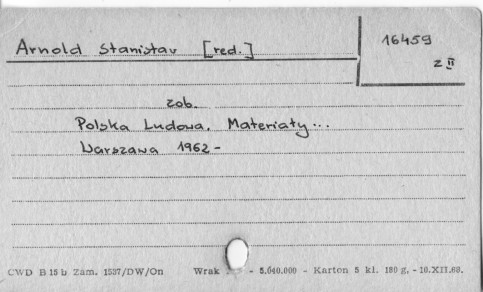 Arnold Stanisław [red.]
16459
z II
zob.
Polska Ludowa. Materiały...
Warszawa 1962-
CWD B 15 b Zam. 1537/DW/On Wrak - 5.040.000 - Karton 5 kl. 180 g. - 10.XII.60.